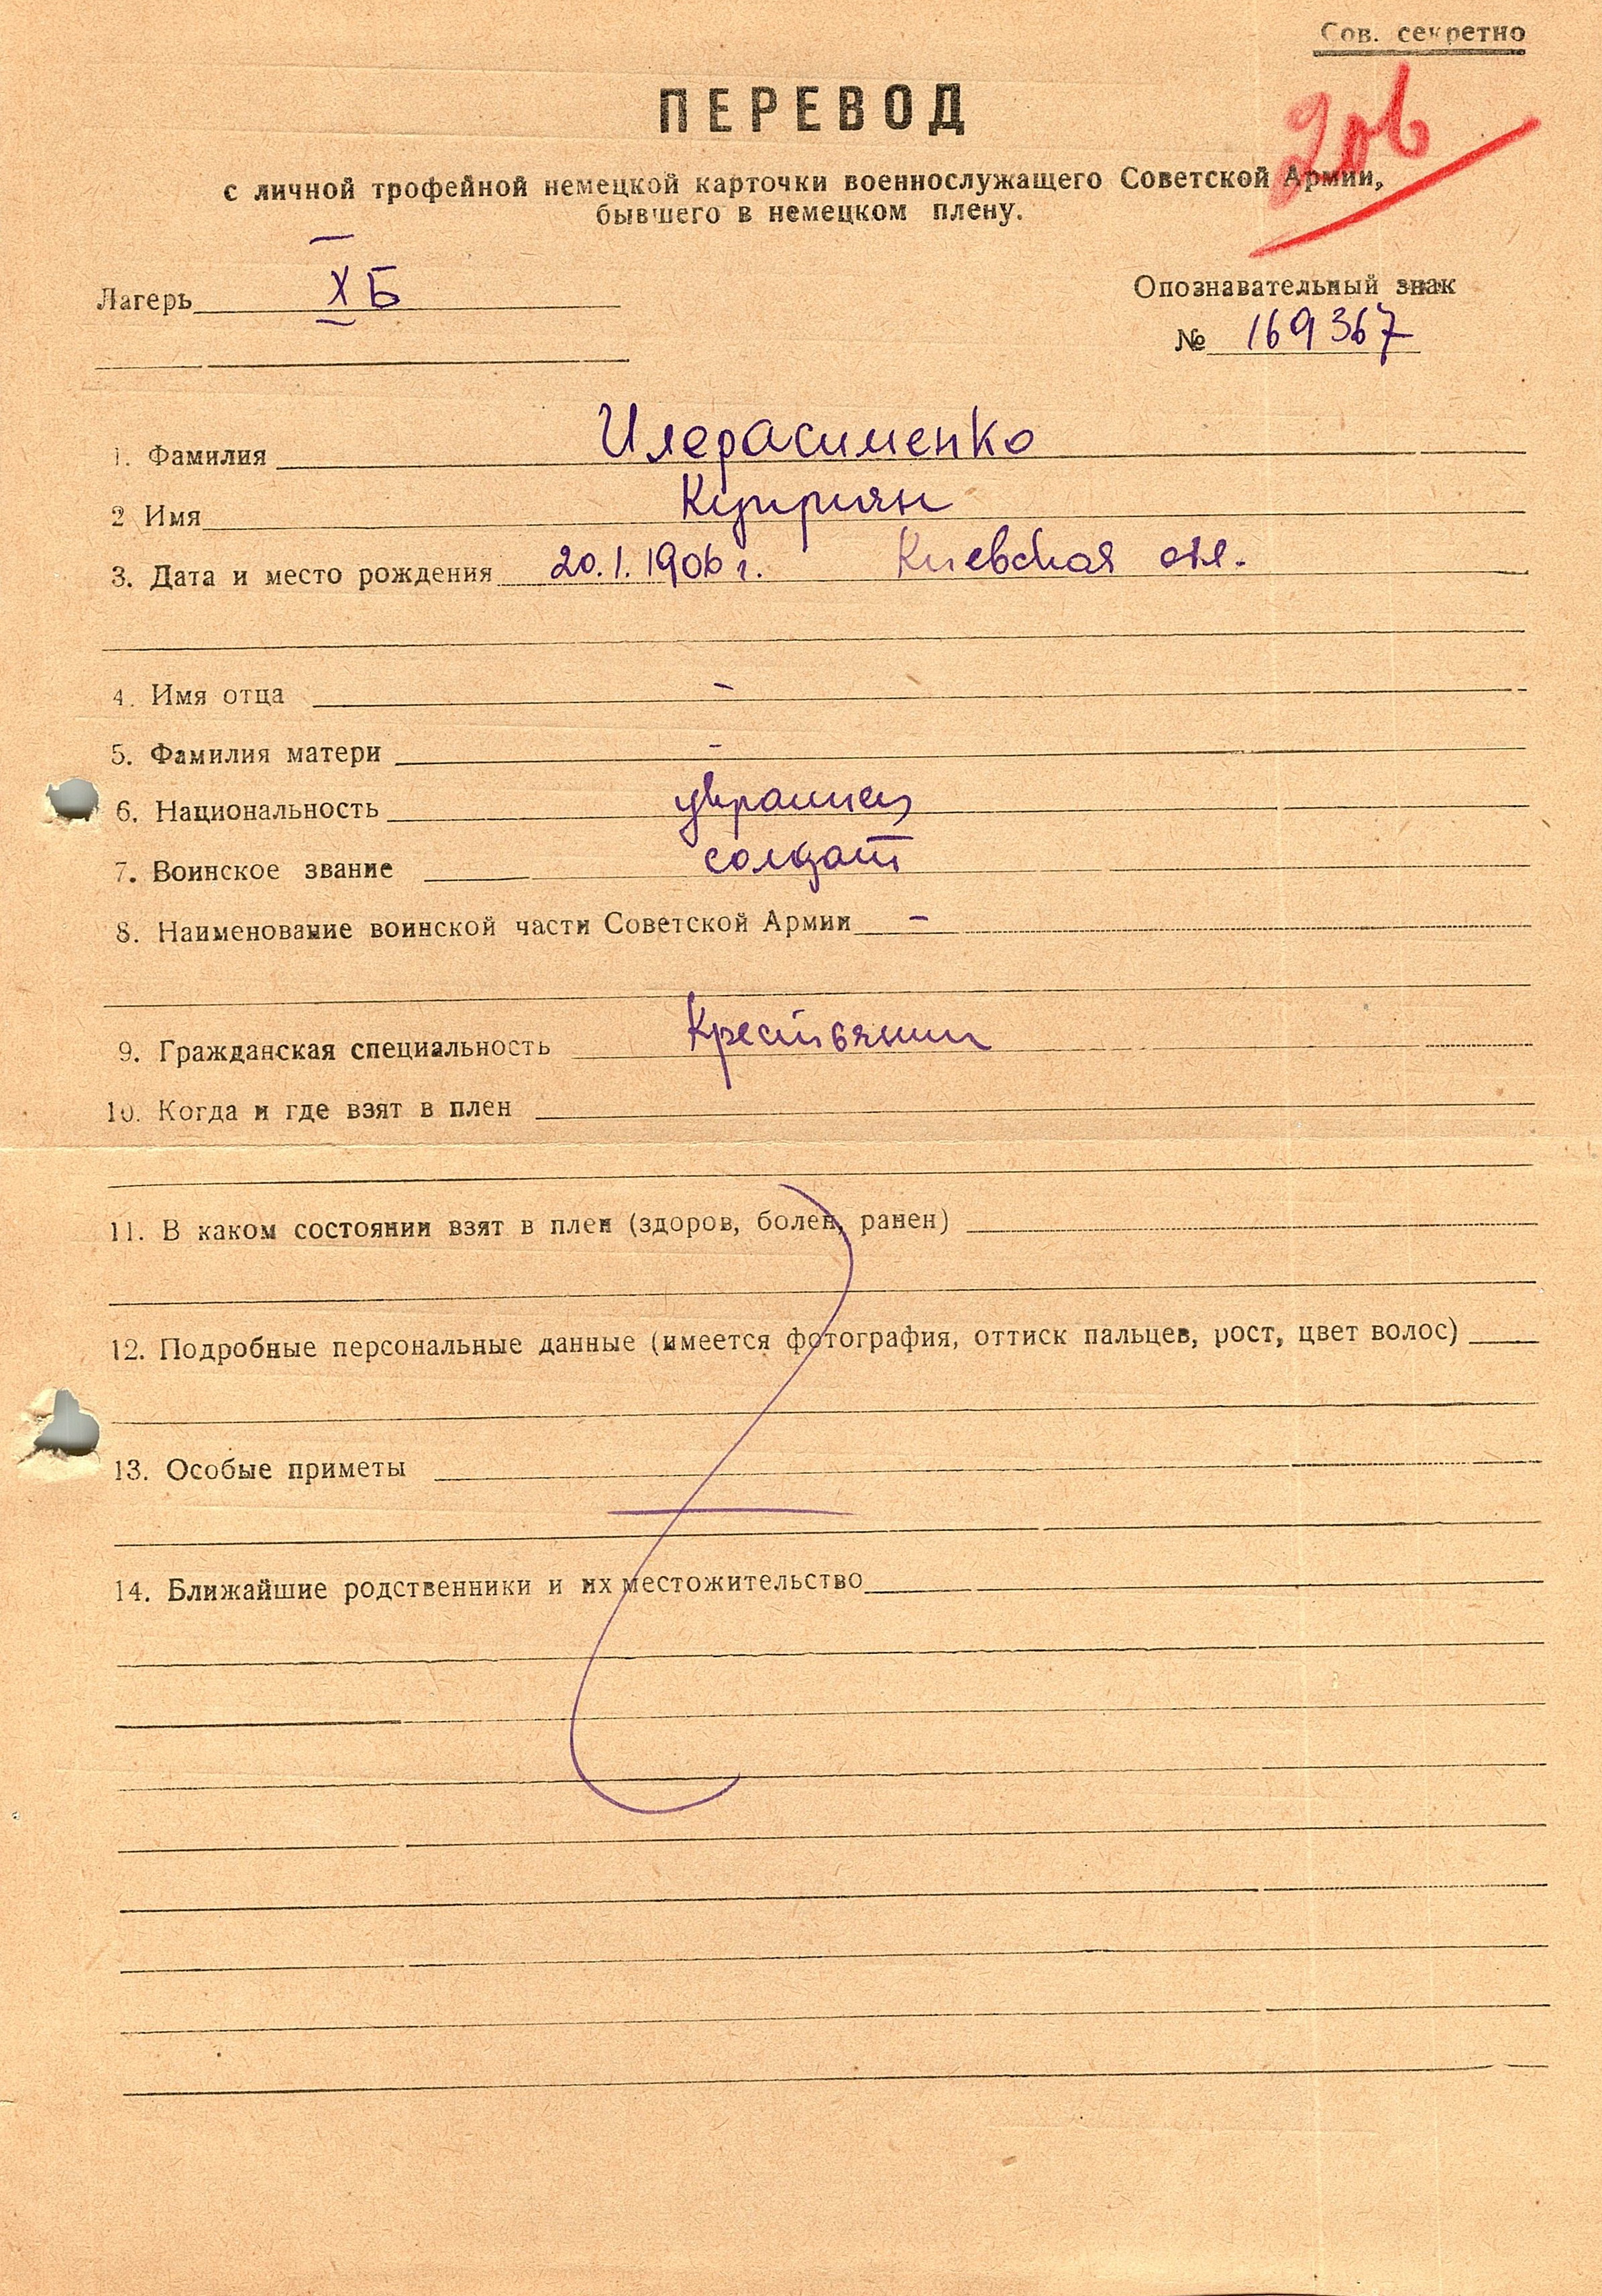 Сов. секретно
ПЕРЕВОД
с личной трофейной немецкой карточки военнослужащего Советской Армии,
бывшего в немецком плену.
Лагерь X Б
Опознавательный знак
№ 169367
1. Фамилия Илерасименко
2 Имя Куприян
3. Дата и место рождения 20.1.1906 г. Киевская обл.
4. Имя отца -
5. Фамилия матери -
6. Национальность украинец
7. Воинское звание солдат
8. Наименование воинской части Советской Армии -
9. Гражданская специальность Крестьянин
10. Когда и где взят в плен
11. В каком состоянии взят в плен (здоров, болен, ранен)
12. Подробные персональные данные (имеется фотография, оттиск пальцев, рост, цвет волос)
13. Особые приметы
14. Ближайшие родственники и их местожительство